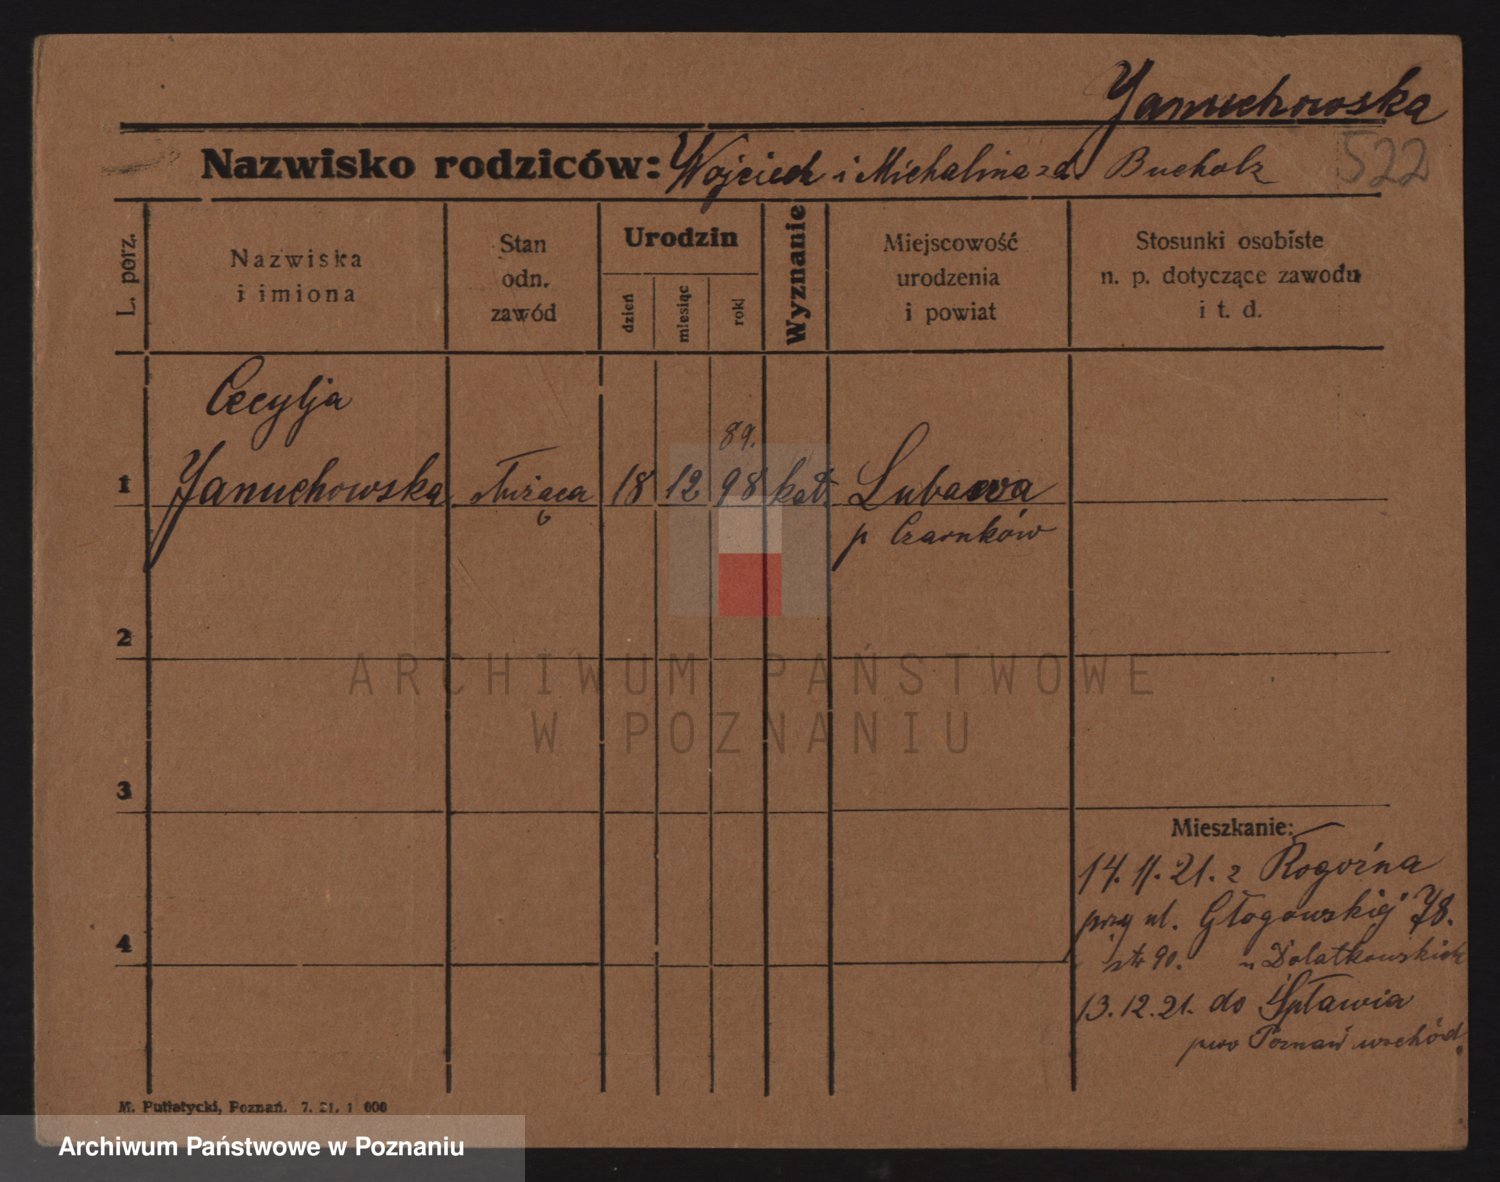 Januchowska
Nazwisko rodziców: Wojciech i Michalina zd. Bucholz 522
L. porz.
Nazwiska
i imiona
Stan
odn.
zawód
Urodzin
dzień
miesiąc
rok
Wyznanie
Miejscowość
urodzenia
i powiat
Stosunki osobiste
n. p. dotyczące zawodu
i t. d.
Cecylja
89.
1 Januchowska służąca 18 12 98 kat. Lubawa
p Czarnków
2
ARCHIWUM PAŃSTWOWE
W POZNANIU
3
Mieszkanie:
14. 11. 21. z Rogoźna
przy ul. Głogowskiej 78.
4
str 90. u Dolatkowskich
13. 12. 21. do Spławia
pow Poznań wschód.
M. Putiatycki, Poznań. 7. 21. 1 000
Archiwum Państwowe w Poznaniu